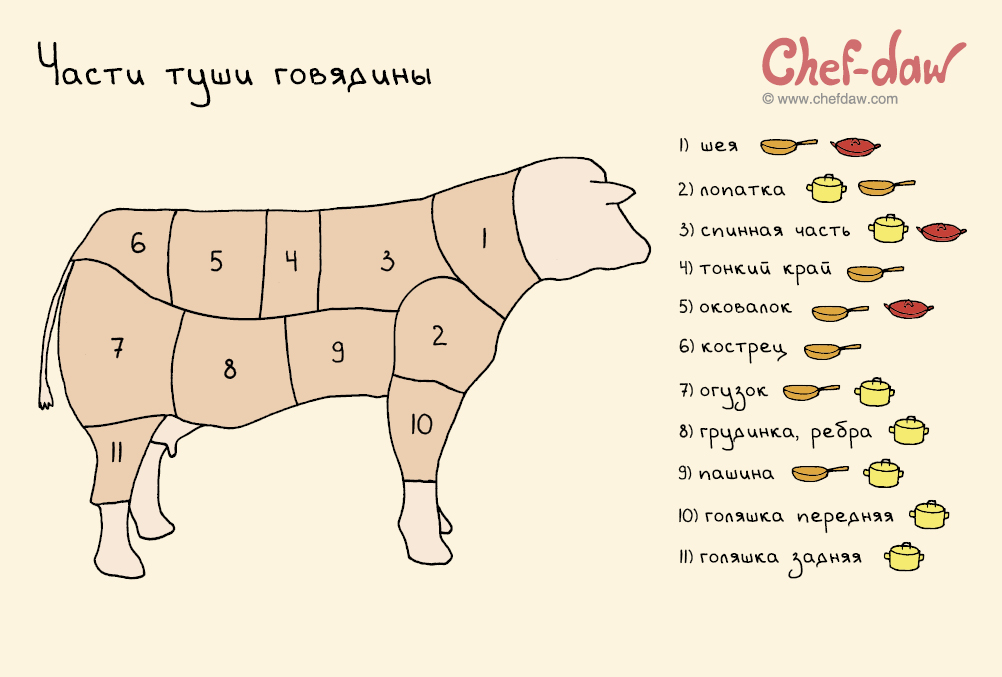 Части туши говядины
Chef-daw
© www.chefdaw.com
1) шея
2) лопатка
3) спинная часть
4) тонкий край
5) оковалок
6) кострец
7) огузок
8) грудинка, ребра
9) пашина
10) голяшка передняя
11) голяшка задняя
6
5
4
3
1
7
8
9
2
10
11